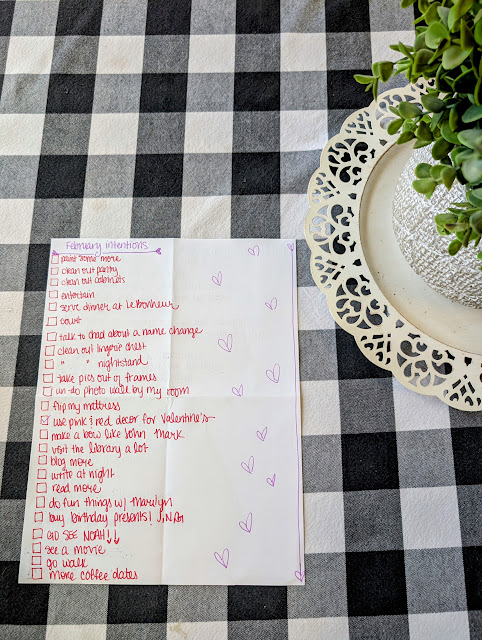 February Intentions
paint some more
clean out pantry
clean out cabinets
entertain
serve dinner at LeBonheur
court
talk to Chad about a name change
clean out lingerie chest
" " nightstand
take pics out of frames
un-do photo wall by my room
flip my mattress
use pink & red decor for Valentine's
make a bow like John Mark
visit the library a lot
blog more
write at night
read more
do fun things w/ Marilyn
buy birthday presents!
GO SEE NOAH!
see a movie
go walk
more coffee dates